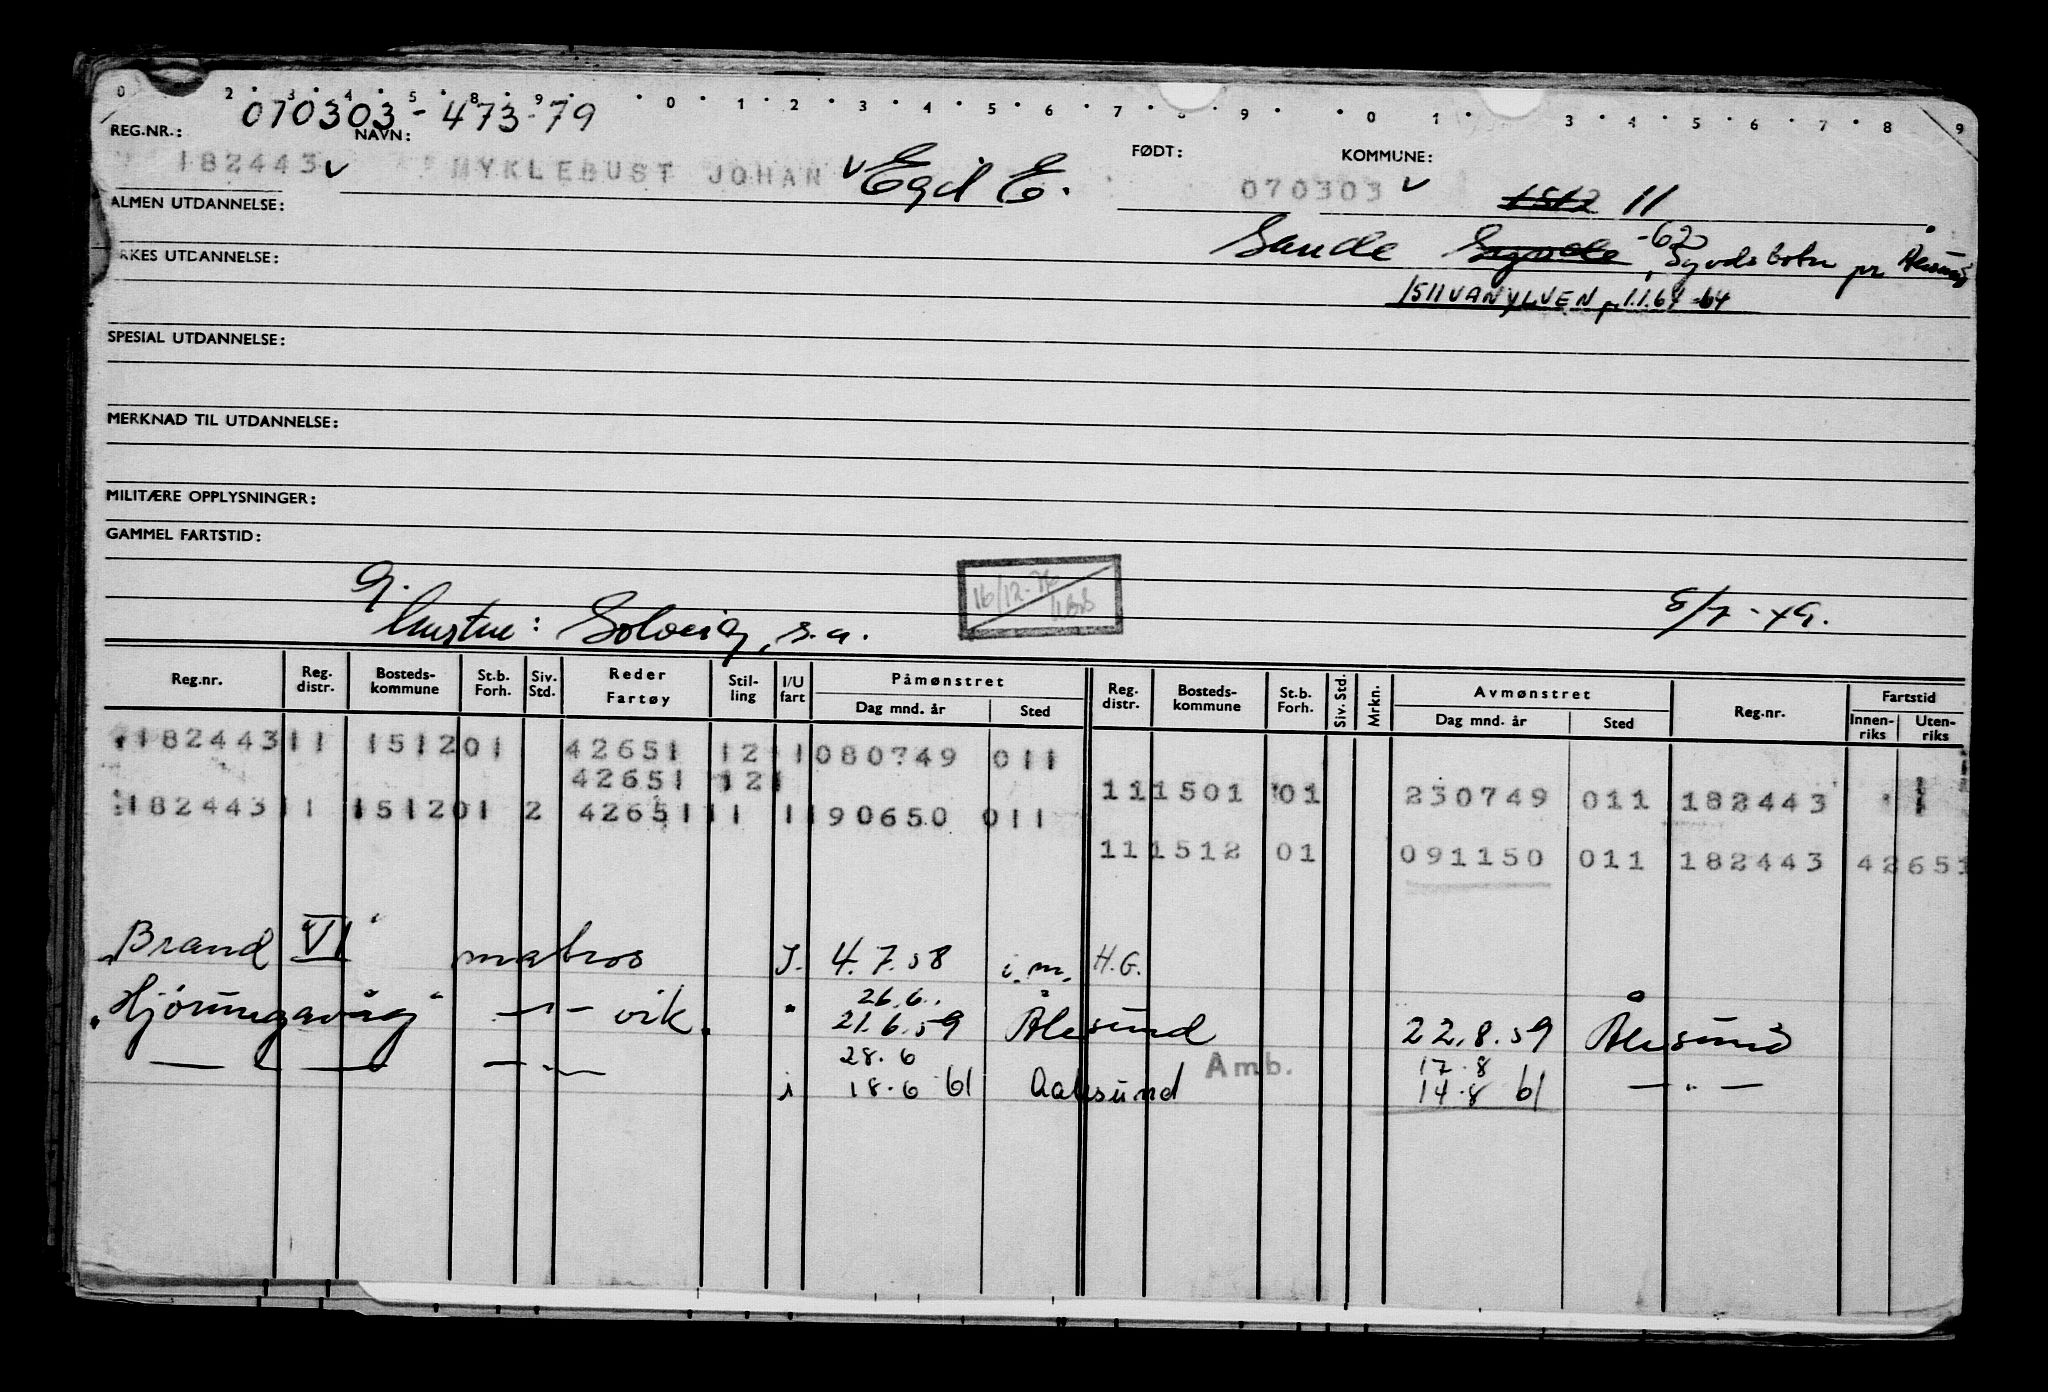 070303-473-79
REG.NR.: NAVN: FØDT: KOMMUNE:
182443 v MYKLEBUST JOHAN v Egil E. 070303 v 1512 11
ALMEN UTDANNELSE:
Sande Syvde -62, Syvdsbotn pr Ålesund
RKES UTDANNELSE:
1511 VANYLVEN pr 1.1.64 -64
SPESIAL UTDANNELSE:
MERKNAD TIL UTDANNELSE:
MILITÆRE OPPLYSNINGER:
GAMMEL FARTSTID:
g.
16/12-76
8/7-49.
Hustru: Solveig, s.a.
Reg.nr. Reg. distr. Bosteds-kommune St.b. Forh. Siv. Std. Reder Fartøy Stil-ling I/U fart Påmønstret Dag mnd. år Sted Reg. distr. Bosteds-kommune St.b. Forh. Siv. Std. Mrkn. Avmønstret Dag mnd. år Sted Reg.nr. Fartstid Innen-riks Uten-riks
182443 11 1512 01 42651 12 1 080749 011
42651 12 1
11 1501 01 230749 011 182443
182443 11 1512 01 2 42651 11 1 190650 011
11 1512 01 091150 011 182443 42651
"Brand VI" matros I. 4.7.58 i.m. H.G.
26.6.
"Hjørungavåg" -"- vik. " 21.6.59 Ålesund 22.8.59 Ålesund
28.6 Amb. 17.8
— " — -"- i 18.6 61 Aalesund 14.8 61 —"—